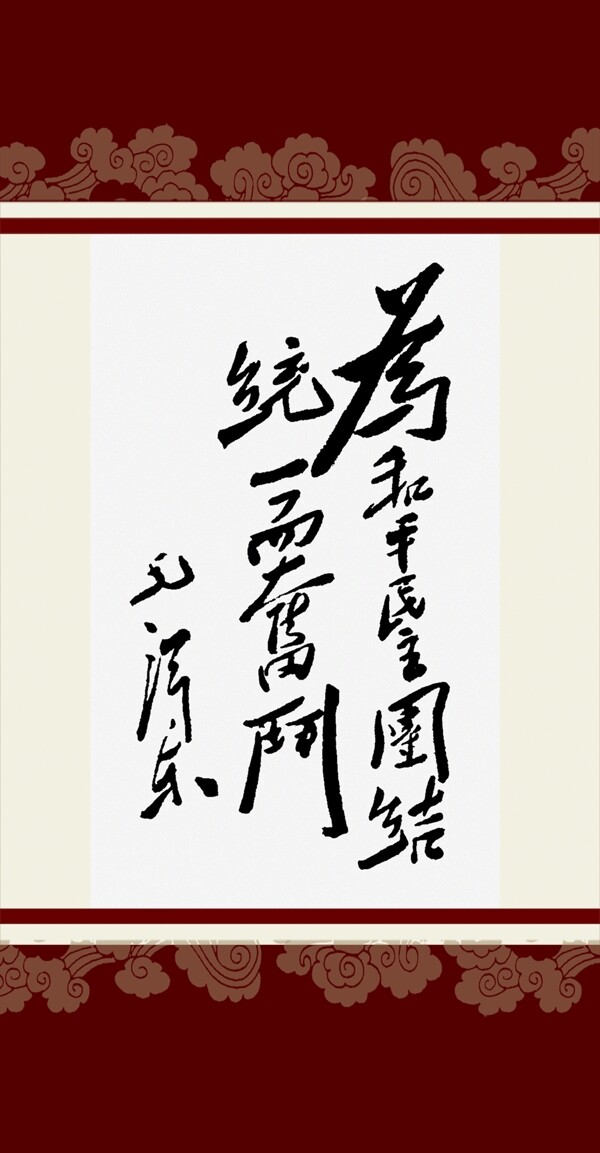 為和平民主團結
統一而奮鬥
毛澤东